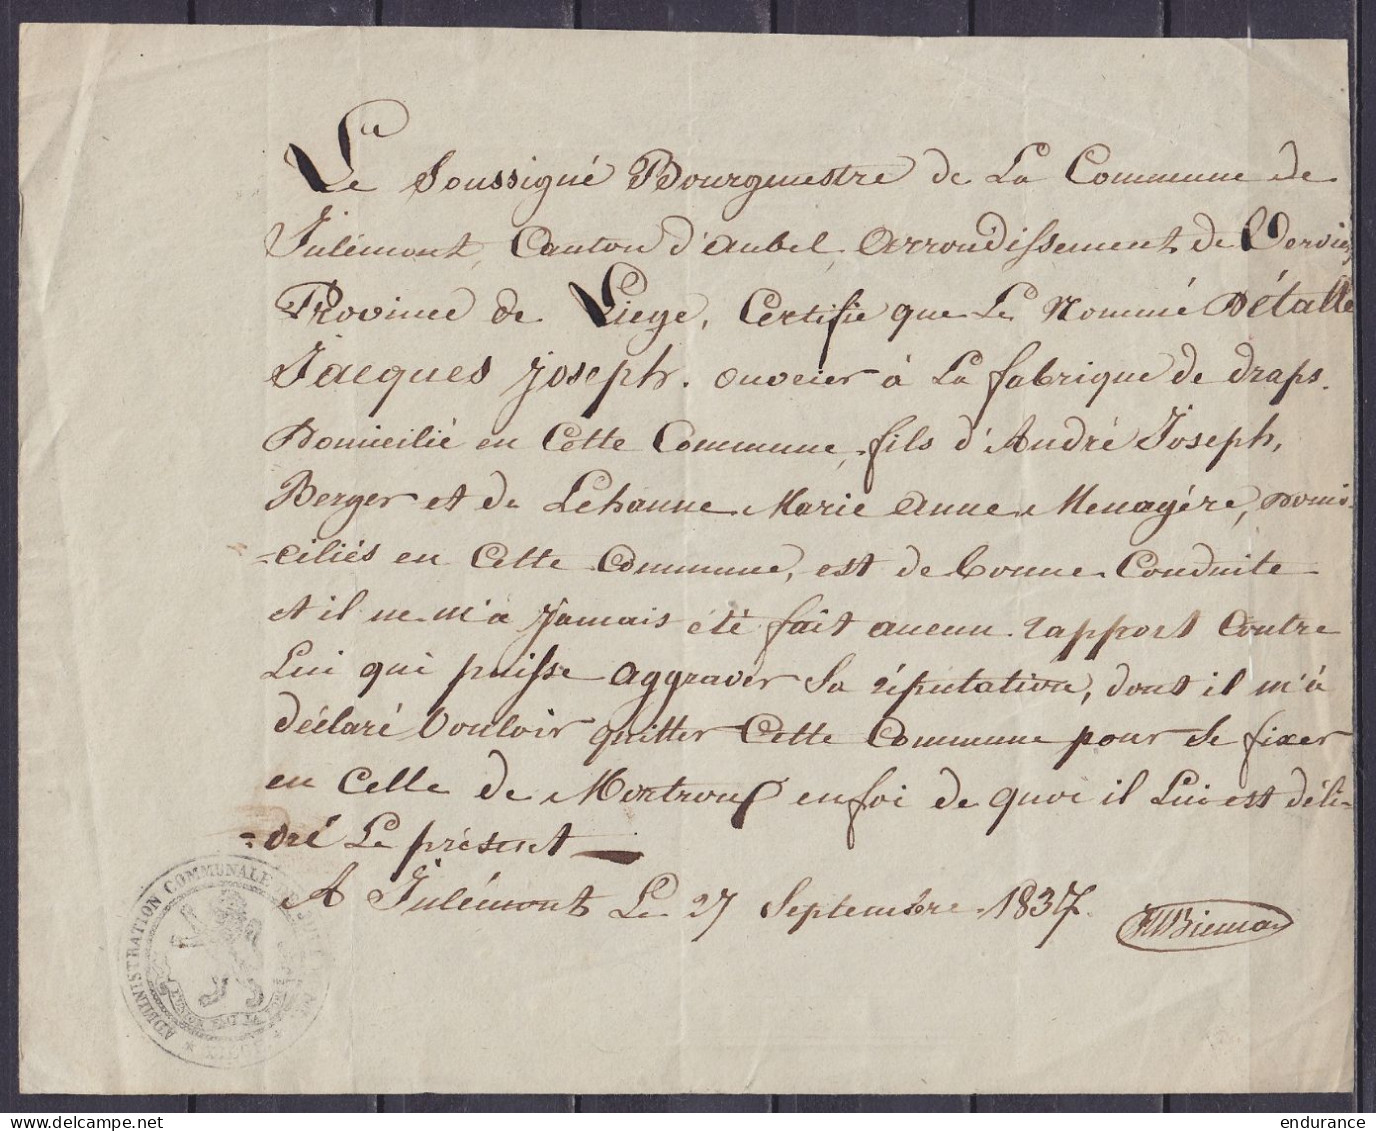 Le Soussigné Bourgmestre de La Commune de
Julémont, Canton d'aubel, arrondissement de Vervier
Province de Liege, Certifie que Le Nommé Détalle
Jacques Joseph. ouvrier à La fabrique de draps.
Domicilié en Cette Commune, fils d'André Joseph,
Berger et de Lehanne Marie anne Menagère, Domi-
=ciliés en Cette Commune, est de bonne Conduite
et il ne m'a Jamais été fait aucun rapport Contre
Lui qui puisse aggraver Sa réputation, dont il m'à
déclaré Vouloir quitter Cette Commune pour Se fixer
en Celle de Mortroux en foi de quoi il Lui est déli-
=vré Le présent
A Julémont Le 27 Septembre 1837.
ADMINISTRATION COMMUNALE DE JULÉMONT
L'UNION FAIT LA FORCE
* LIEGE *
endurance